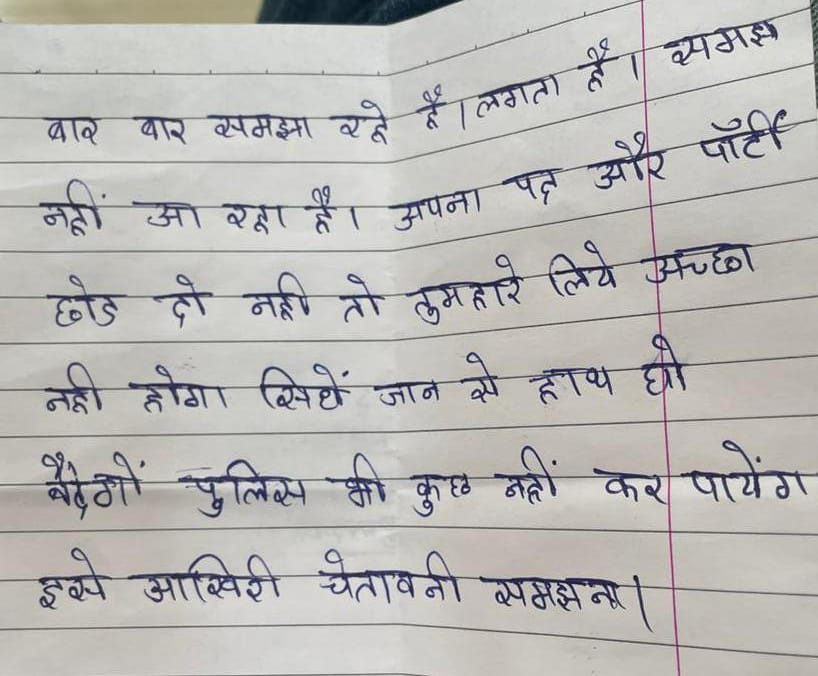 बार बार समझा रहे है। लगता है। समझ
नहीं आ रहा है। अपना पद और पॉर्टी
छोड दो नही तो तुमहारे लिये अच्छा
नही होगा सिधें जान से हाथ धो
बैठेगों पुलिस भी कुछ नहीं कर पायेंग
इसे आखिरी चेतावनी समझना।